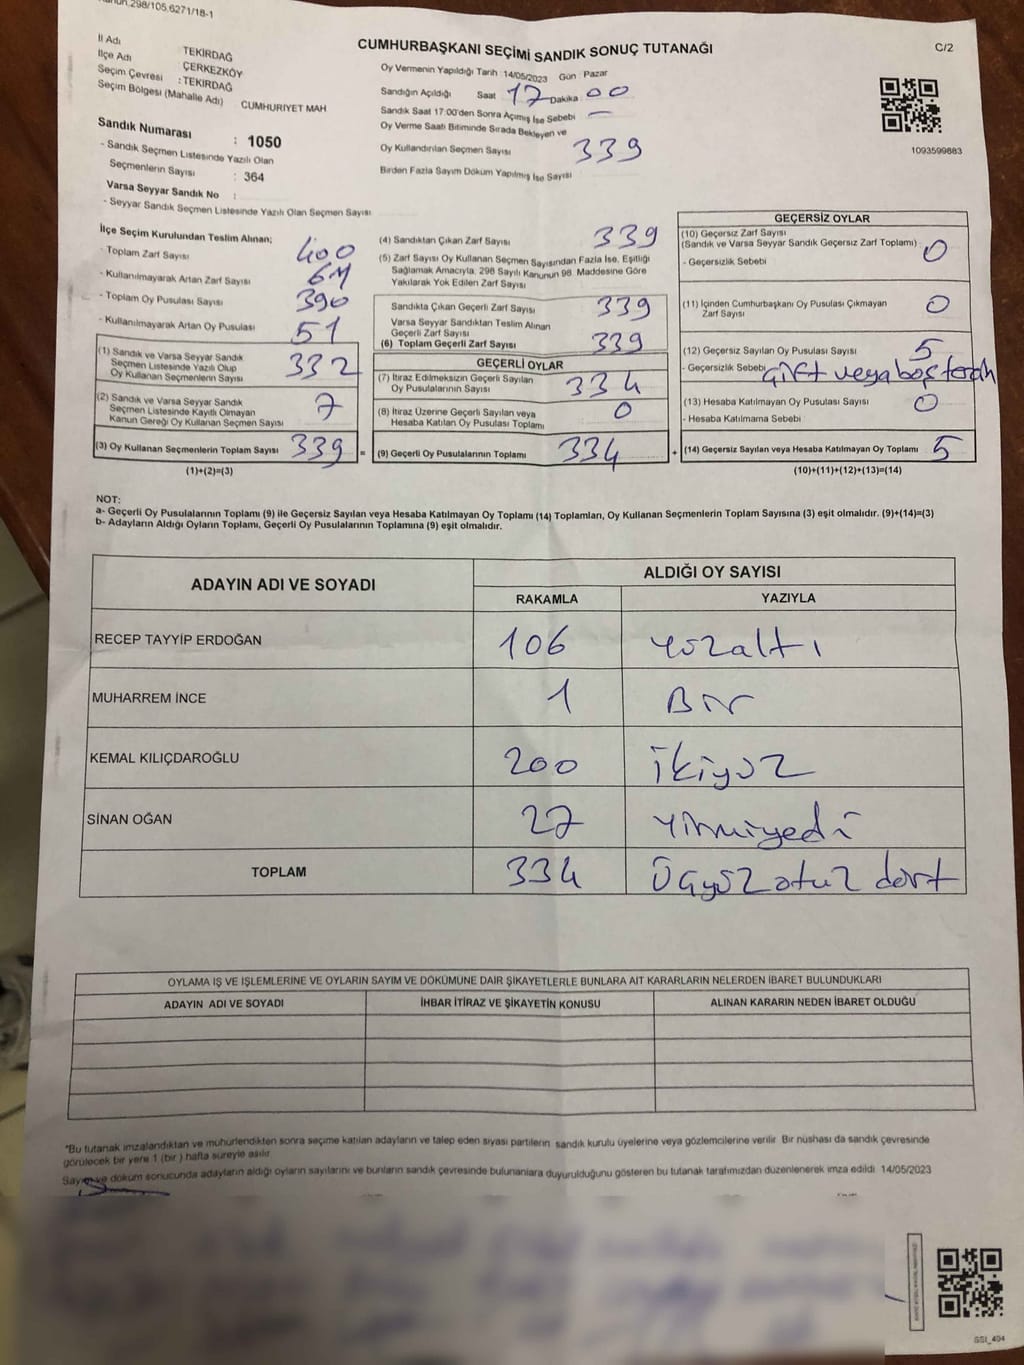 298/105.6271/18-1
CUMHURBAŞKANI SEÇİMİ SANDIK SONUÇ TUTANAĞI
C/2
İl Adı TEKİRDAĞ
İlçe Adı ÇERKEZKÖY
Seçim Çevresi : TEKİRDAĞ
Seçim Bölgesi (Mahalle Adı) CUMHURİYET MAH
Sandık Numarası : 1050
- Sandık Seçmen Listesinde Yazılı Olan
Seçmenlerin Sayısı : 364
Varsa Seyyar Sandık No :
- Seyyar Sandık Seçmen Listesinde Yazılı Olan Seçmen Sayısı
Oy Vermenin Yapıldığı Tarih : 14/05/2023 Gün : Pazar
Sandığın Açıldığı Saat 17 Dakika 00
Sandık Saat 17:00'den Sonra Açımış İse Sebebi —
Oy Verme Saati Bitiminde Sırada Bekleyen ve
Oy Kullandırılan Seçmen Sayısı 339
Birden Fazla Sayım Döküm Yapılmış İse Sayısı
1093599883
İlçe Seçim Kurulundan Teslim Alınan;
- Toplam Zarf Sayısı 400
- Kullanılmayarak Artan Zarf Sayısı
- Toplam Oy Pusulası Sayısı 390
- Kullanılmayarak Artan Oy Pusulası 51
(1) Sandık ve Varsa Seyyar Sandık
Seçmen Listesinde Yazılı Olup
Oy Kullanan Seçmenlerin Sayısı 332
(2) Sandık ve Varsa Seyyar Sandık
Seçmen Listesinde Kayıtlı Olmayan
Kanun Gereği Oy Kullanan Seçmen Sayısı 7
(3) Oy Kullanan Seçmenlerin Toplam Sayısı 339 =
(1)+(2)=(3)
(4) Sandıktan Çıkan Zarf Sayısı 339
(5) Zarf Sayısı Oy Kullanan Seçmen Sayısından Fazla İse, Eşitliği
Sağlamak Amacıyla, 298 Sayılı Kanunun 98. Maddesine Göre
Yakılarak Yok Edilen Zarf Sayısı
Sandıkta Çıkan Geçerli Zarf Sayısı 339
Varsa Seyyar Sandıktan Teslim Alınan
Geçerli Zarf Sayısı
(6) Toplam Geçerli Zarf Sayısı 339
GEÇERLİ OYLAR
(7) İtiraz Edilmeksizin Geçerli Sayılan
Oy Pusulalarının Sayısı 334
(8) İtiraz Üzerine Geçerli Sayılan veya
Hesaba Katılan Oy Pusulası Toplamı 0
(9) Geçerli Oy Pusulalarının Toplamı 334 +
GEÇERSİZ OYLAR
(10) Geçersiz Zarf Sayısı
(Sandık ve Varsa Seyyar Sandık Geçersiz Zarf Toplamı) 0
- Geçersizlik Sebebi
(11) İçinden Cumhurbaşkanı Oy Pusulası Çıkmayan
Zarf Sayısı 0
(12) Geçersiz Sayılan Oy Pusulası Sayısı 5
- Geçersizlik Sebebi çift veya boş
(13) Hesaba Katılmayan Oy Pusulası Sayısı 0
- Hesaba Katılmama Sebebi
(14) Geçersiz Sayılan veya Hesaba Katılmayan Oy Toplamı 5
(10)+(11)+(12)+(13)=(14)
NOT:
a- Geçerli Oy Pusulalarının Toplamı (9) ile Geçersiz Sayılan veya Hesaba Katılmayan Oy Toplamı (14) Toplamları, Oy Kullanan Seçmenlerin Toplam Sayısına (3) eşit olmalıdır. (9)+(14)=(3)
b- Adayların Aldığı Oyların Toplamı, Geçerli Oy Pusulalarının Toplamına (9) eşit olmalıdır.
ADAYIN ADI VE SOYADI ALDIĞI OY SAYISI
RAKAMLA YAZIYLA
RECEP TAYYİP ERDOĞAN 106 Yüzaltı
MUHARREM İNCE 1 Bir
KEMAL KILIÇDAROĞLU 200 ikiyüz
SİNAN OĞAN 27 Yirmiyedi
TOPLAM 334 Üçyüz otuz dört
OYLAMA İŞ VE İŞLEMLERİNE VE OYLARIN SAYIM VE DÖKÜMÜNE DAİR ŞİKAYETLERLE BUNLARA AİT KARARLARIN NELERDEN İBARET BULUNDUKLARI
ADAYIN ADI VE SOYADI İHBAR İTİRAZ VE ŞİKAYETİN KONUSU ALINAN KARARIN NEDEN İBARET OLDUĞU
*Bu tutanak imzalandıktan ve mühürlendikten sonra seçime katılan adayların ve talep eden siyasi partilerin sandık kurulu üyelerine veya gözlemcilerine verilir. Bir nüshası da sandık çevresinde
görülecek bir yere 1 (bir) hafta süreyle asılır.
Sayım ve döküm sonucunda adayların aldığı oyların sayılarını ve bunların sandık çevresinde bulunanlara duyurulduğunu gösteren bu tutanak tarafımızdan düzenlenerek imza edildi. 14/05/2023
SSI_404